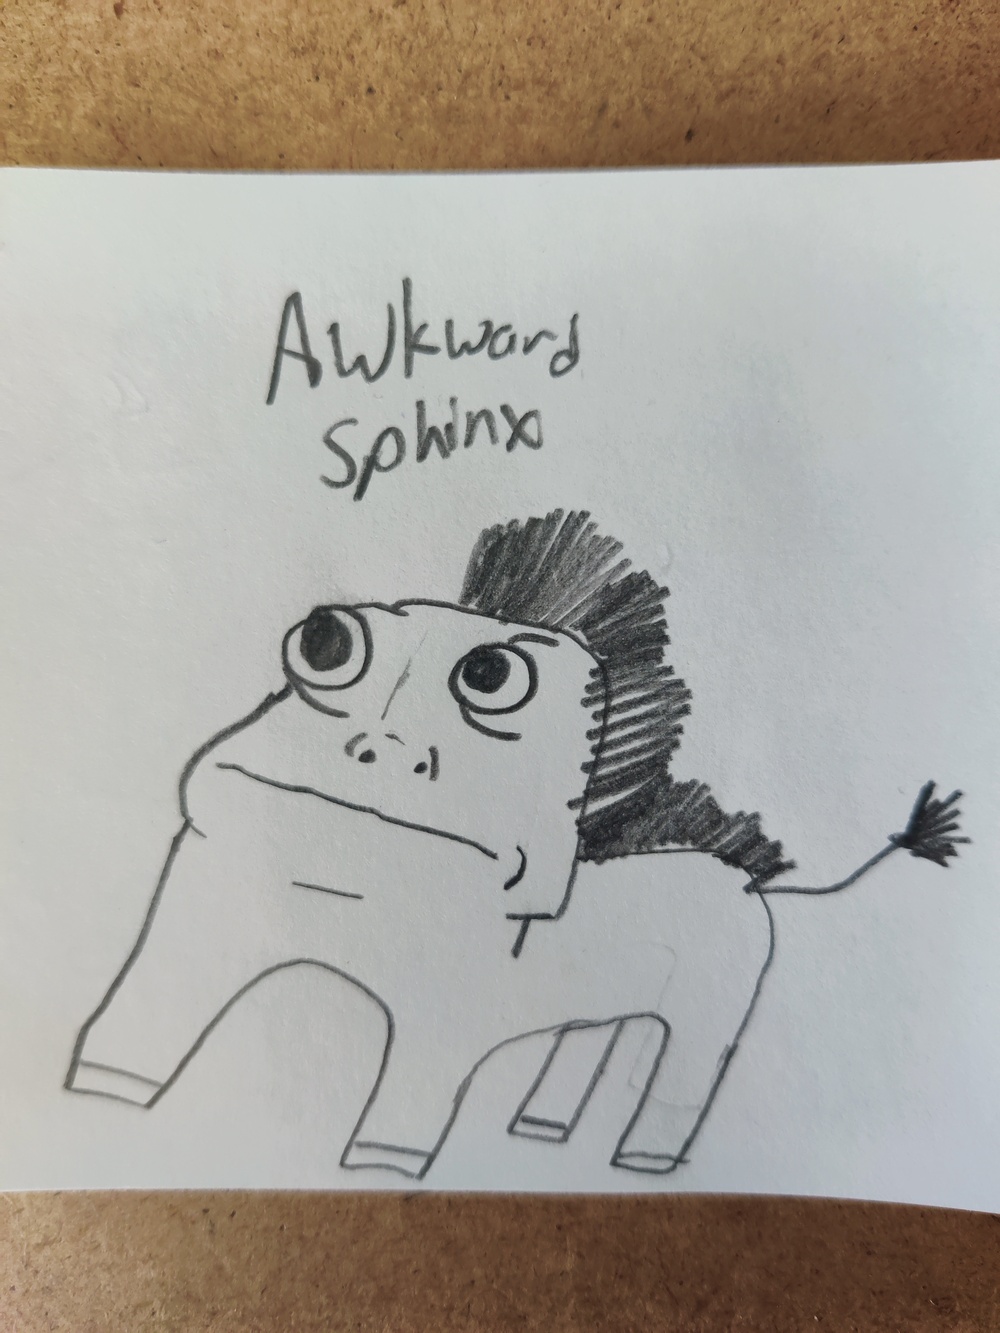 Awkward
Sphinx